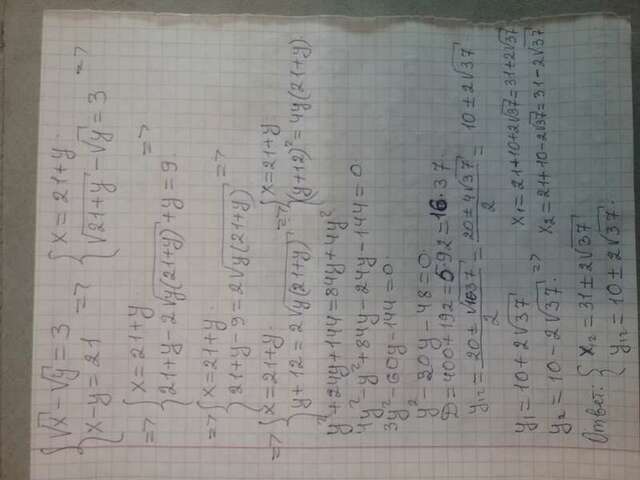 {√x − √y = 3 => {x = 21+y =>
{x−y = 21 {√21+y − √y = 3
=> {x = 21+y =>
{21+y−2√y(21+y) + y = 9
=> {x = 21+y =>
{21+y−9 = 2√y(21+y)
=> {x = 21+y => {x = 21+y
{y+12 = 2√y(21+y) {(y+12)² = 4y(21+y)
y²+24y+144 = 84y+4y²
4y²−y²+84y−24y−144 = 0
3y²−60y−144 = 0
y²−20y−48 = 0
D = 400+192 = 592 = 16·37
y₁₂ = (20±√16·37)/2 = (20±4√37)/2 = 10±2√37
y₁ = 10+2√37 => x₁ = 21+10+2√37 = 31+2√37
y₂ = 10−2√37 x₂ = 21+10−2√37 = 31−2√37
Ответ: {x₁₂ = 31±2√37
{y₁₂ = 10±2√37